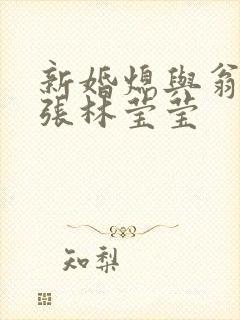 新婚熄與翁
張林莹莹
知梨